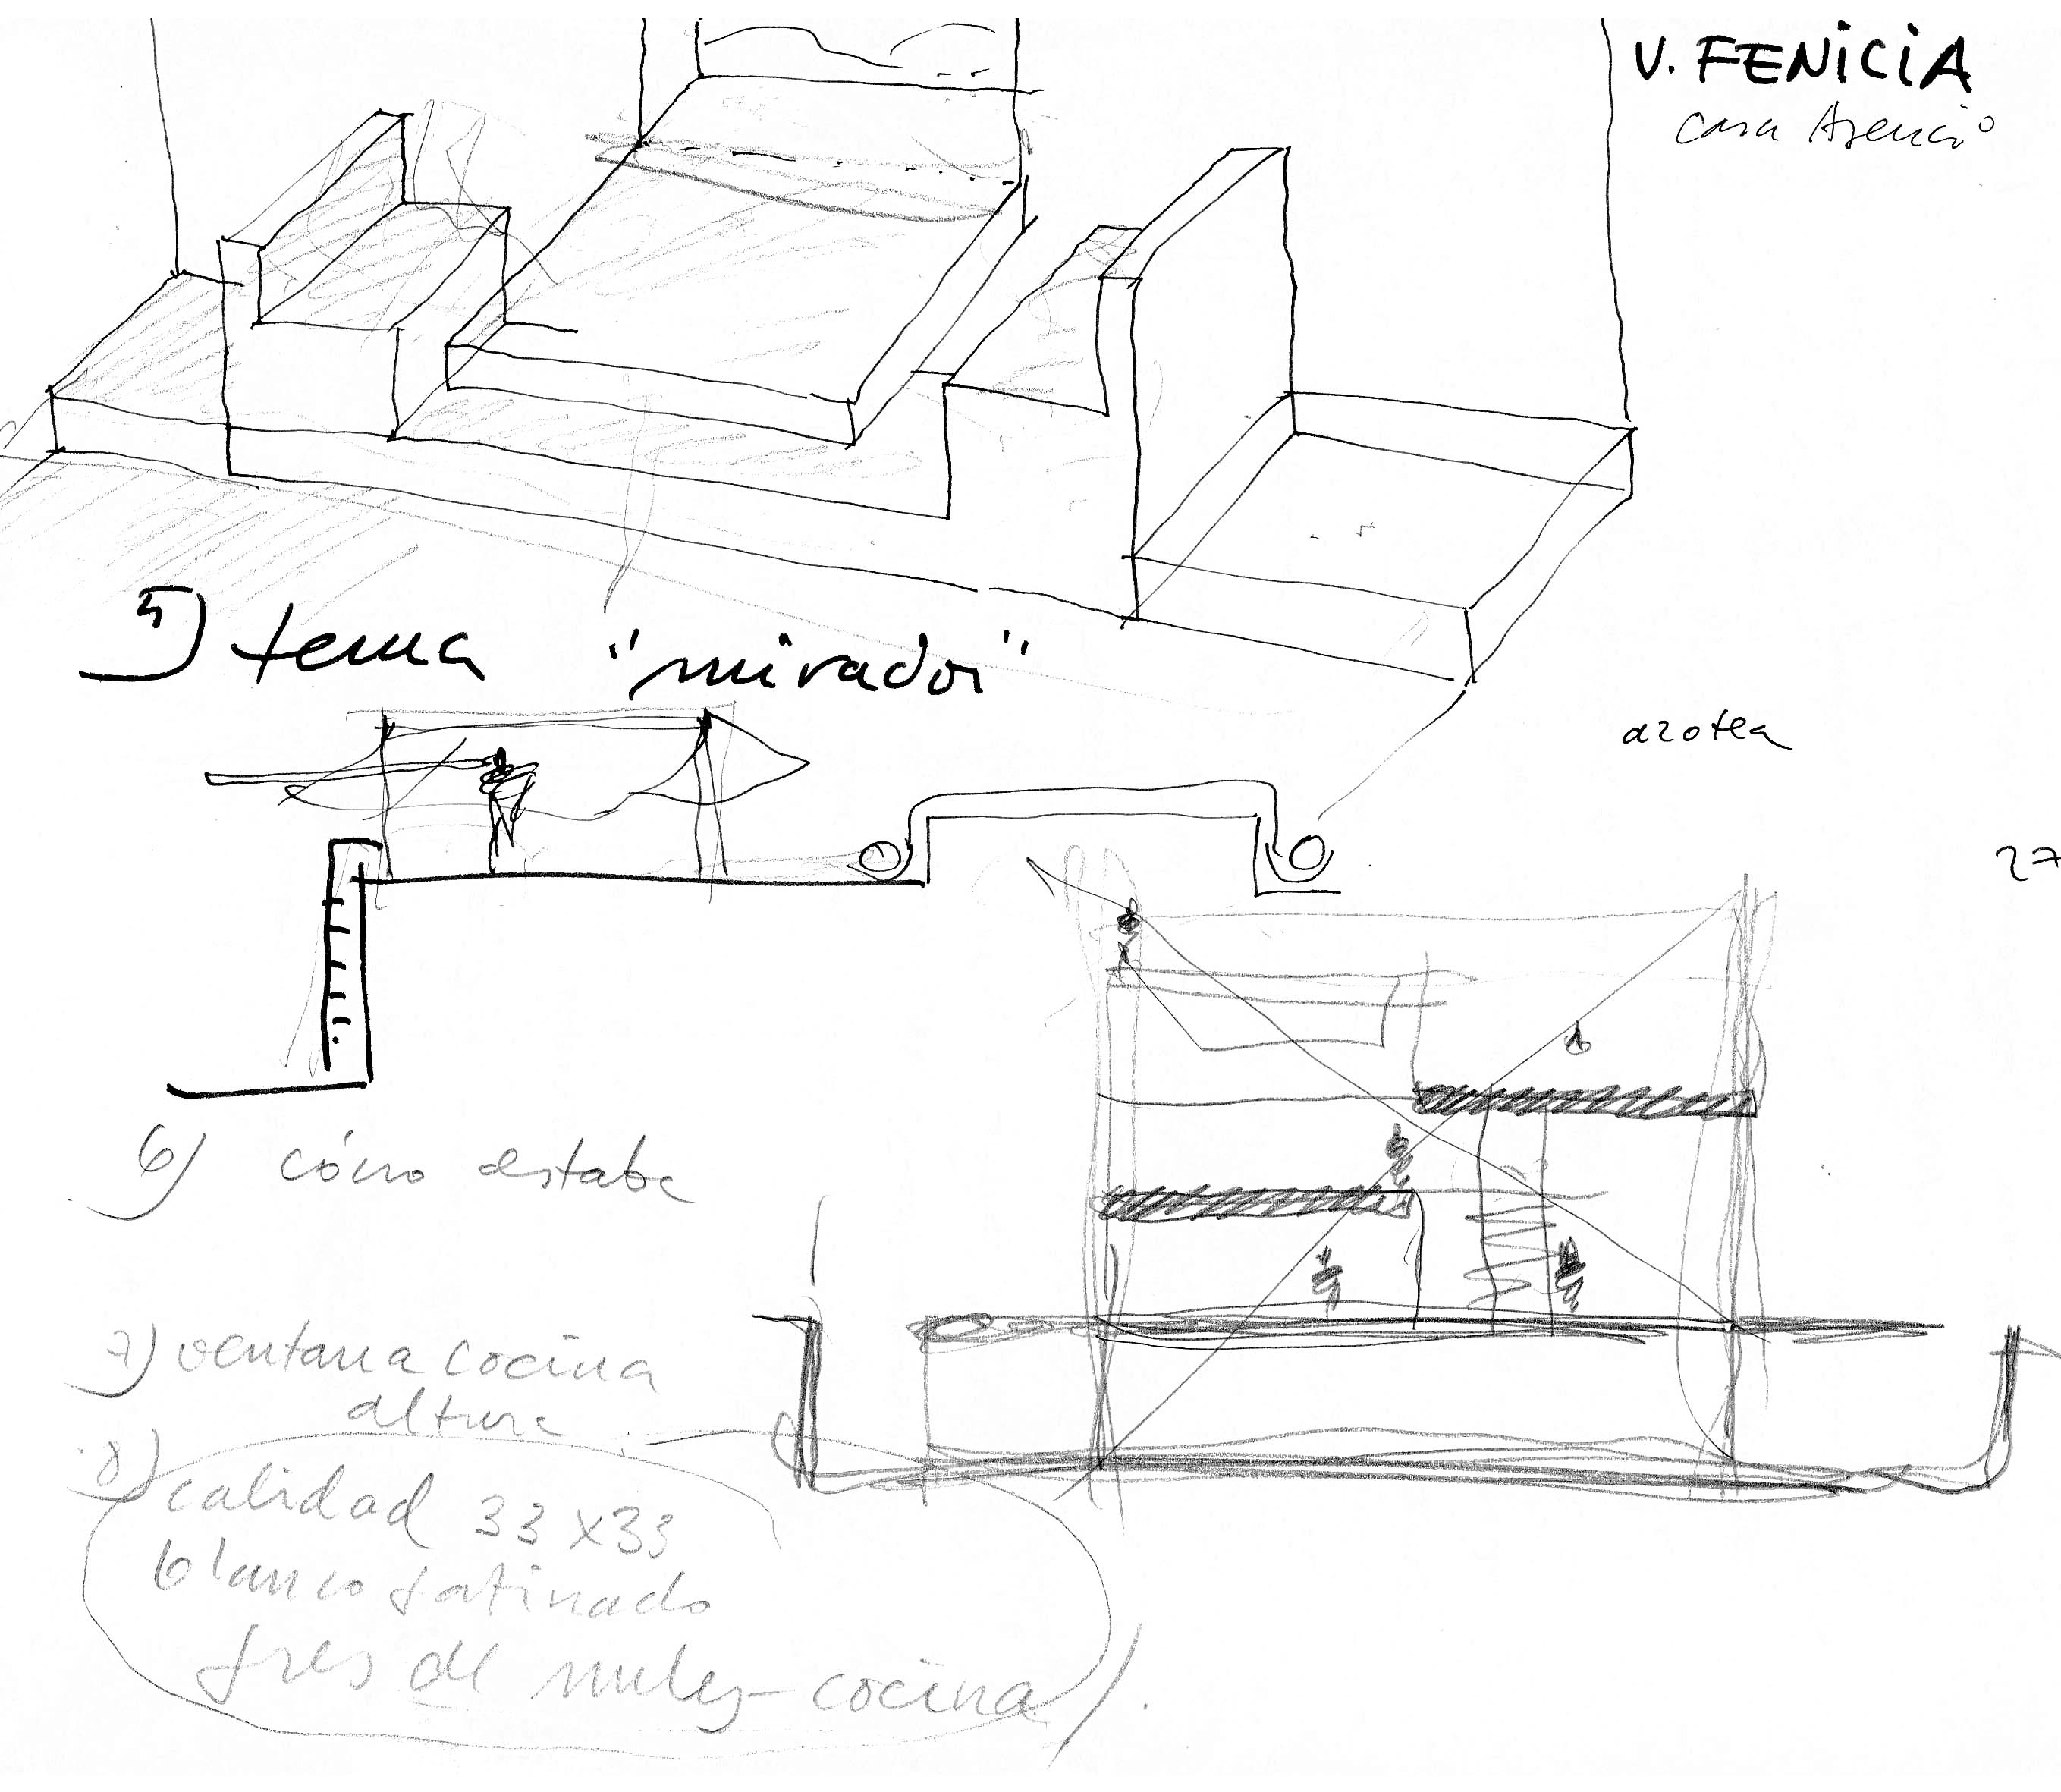 V. FENiCiA
casa Asencio
5) tema "mirador"
azotea
27
6) cómo estaba
7) ventana cocina
altura
8)
calidad 33x33
blanco satinado
gres de cocina